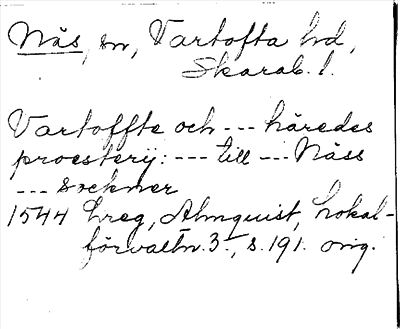 Nås, sn, Vartofta hd,
Skarab. l.
Vartoffte och --- häredes
proesterij: --- till --- Nåss
--- sockner
1544 Lreg, Almquist, Lokal-
förvaltn. 3:, s. 191. orig.